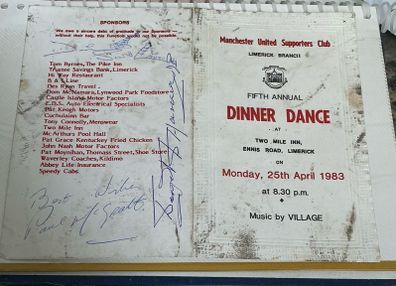 SPONSORS
We owe a sincere debt of gratitude to our Sponsors
without their help this function would not be possible
Tom Byrnes, The Pike Inn
Trustee Savings Bank, Limerick
Hi Way Restaurant
B & S Line
Des Ryan Travel
Don McNamara, Lynwood Park Foodstore
Castle Island Motor Factors
E.D.S. Auto Electrical Specialists
Pat Keogh Motors
Cuchulainn Bar
Tony Connelly, Menswear
Two Mile Inn
McArthurs Pool Hall
Pat Grace Kentucky Fried Chicken
John Nash Motor Factors
Pat Moynihan, Thomas Street, Shoe Store
Waverley Coaches, Kildimo
Abbey Life Insurance
Speedy Cabs
Best Wishes
Paul McGrath
Manchester United Supporters Club
LIMERICK BRANCH
FIFTH ANNUAL
DINNER DANCE
AT
TWO MILE INN,
ENNIS ROAD, LIMERICK
ON
Monday, 25th April 1983
at 8.30 p.m.
Music by VILLAGE